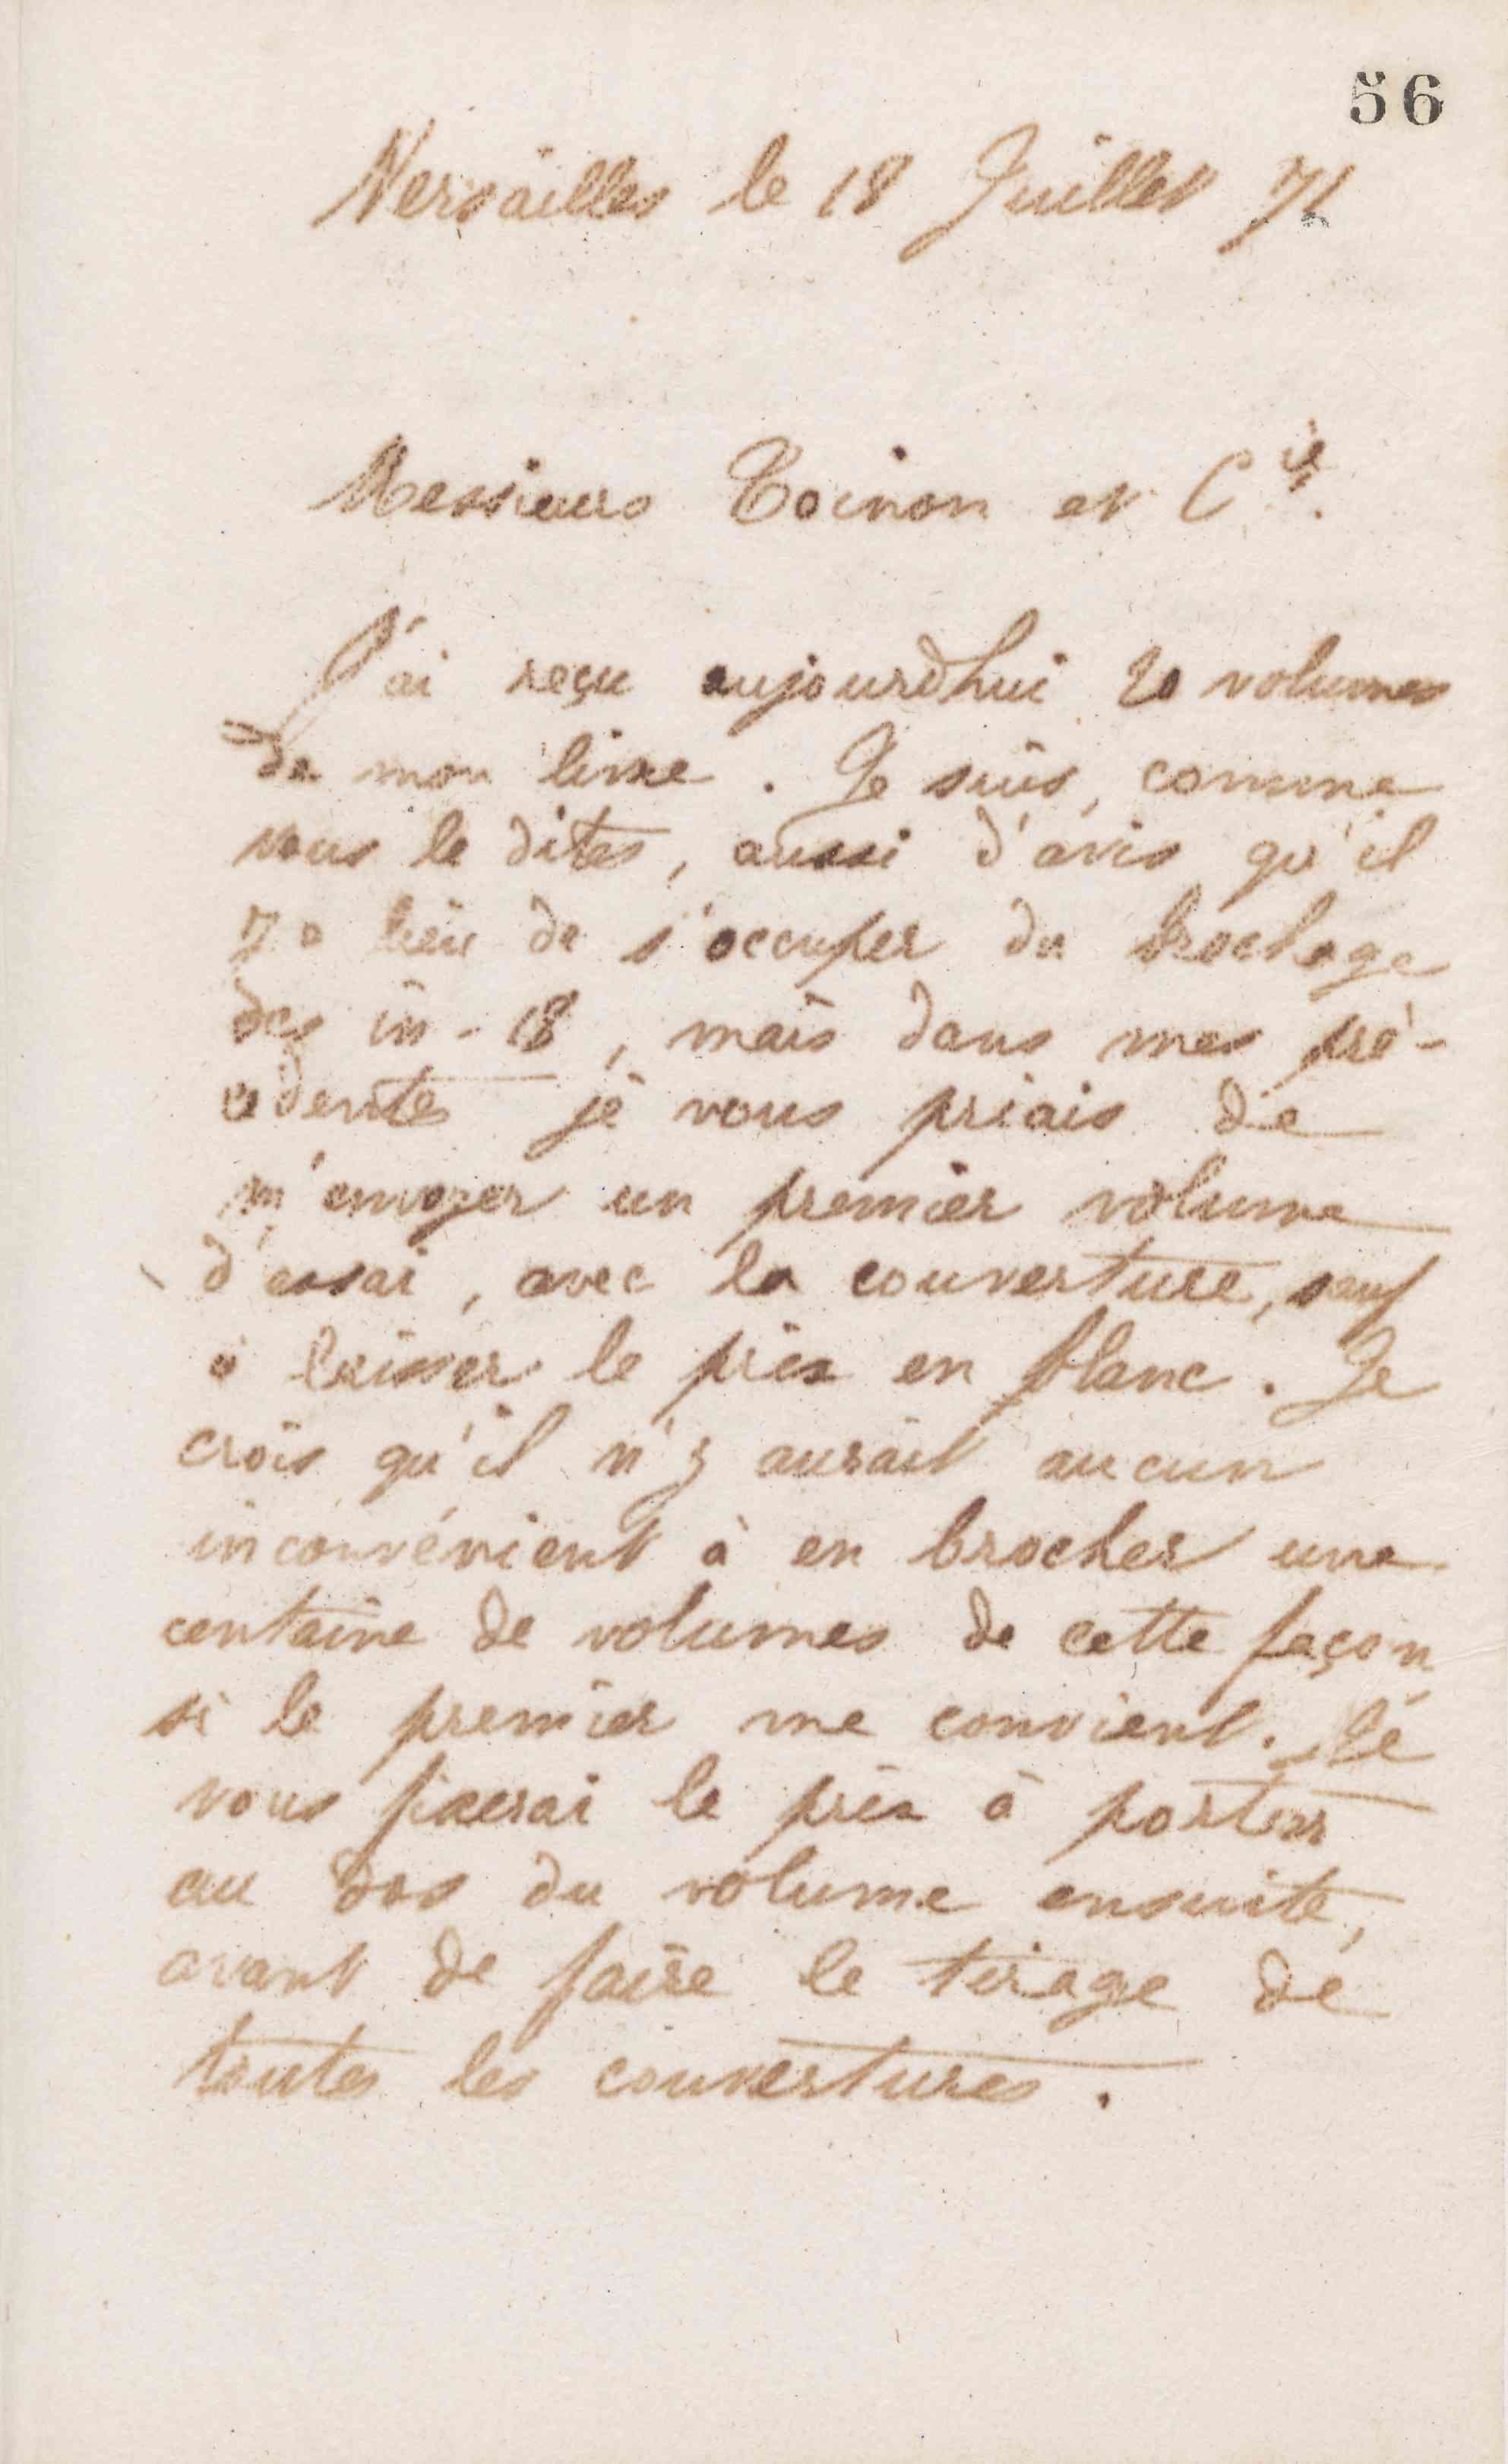 56
Versailles le 18 Juillet 71
Messieurs Toinon et Cie.
J'ai reçu aujourd'hui 20 volumes
de mon livre. Je suis, comme
vous le dites, aussi d'avis qu'il
y a lieu de s'occuper du brochage
des in-18, mais dans mes pré-
cédentes je vous priais de
m'envoyer un premier volume
d'essai, avec la couverture, sauf
à laisser le prix en blanc. Je
crois qu'il n'y aurait aucun
inconvénient à en brocher une
centaine de volumes de cette façon
si le premier me convient. Je
vous fixerai le prix à porter
au dos du volume ensuite,
avant de faire le tirage de
toutes les couvertures.